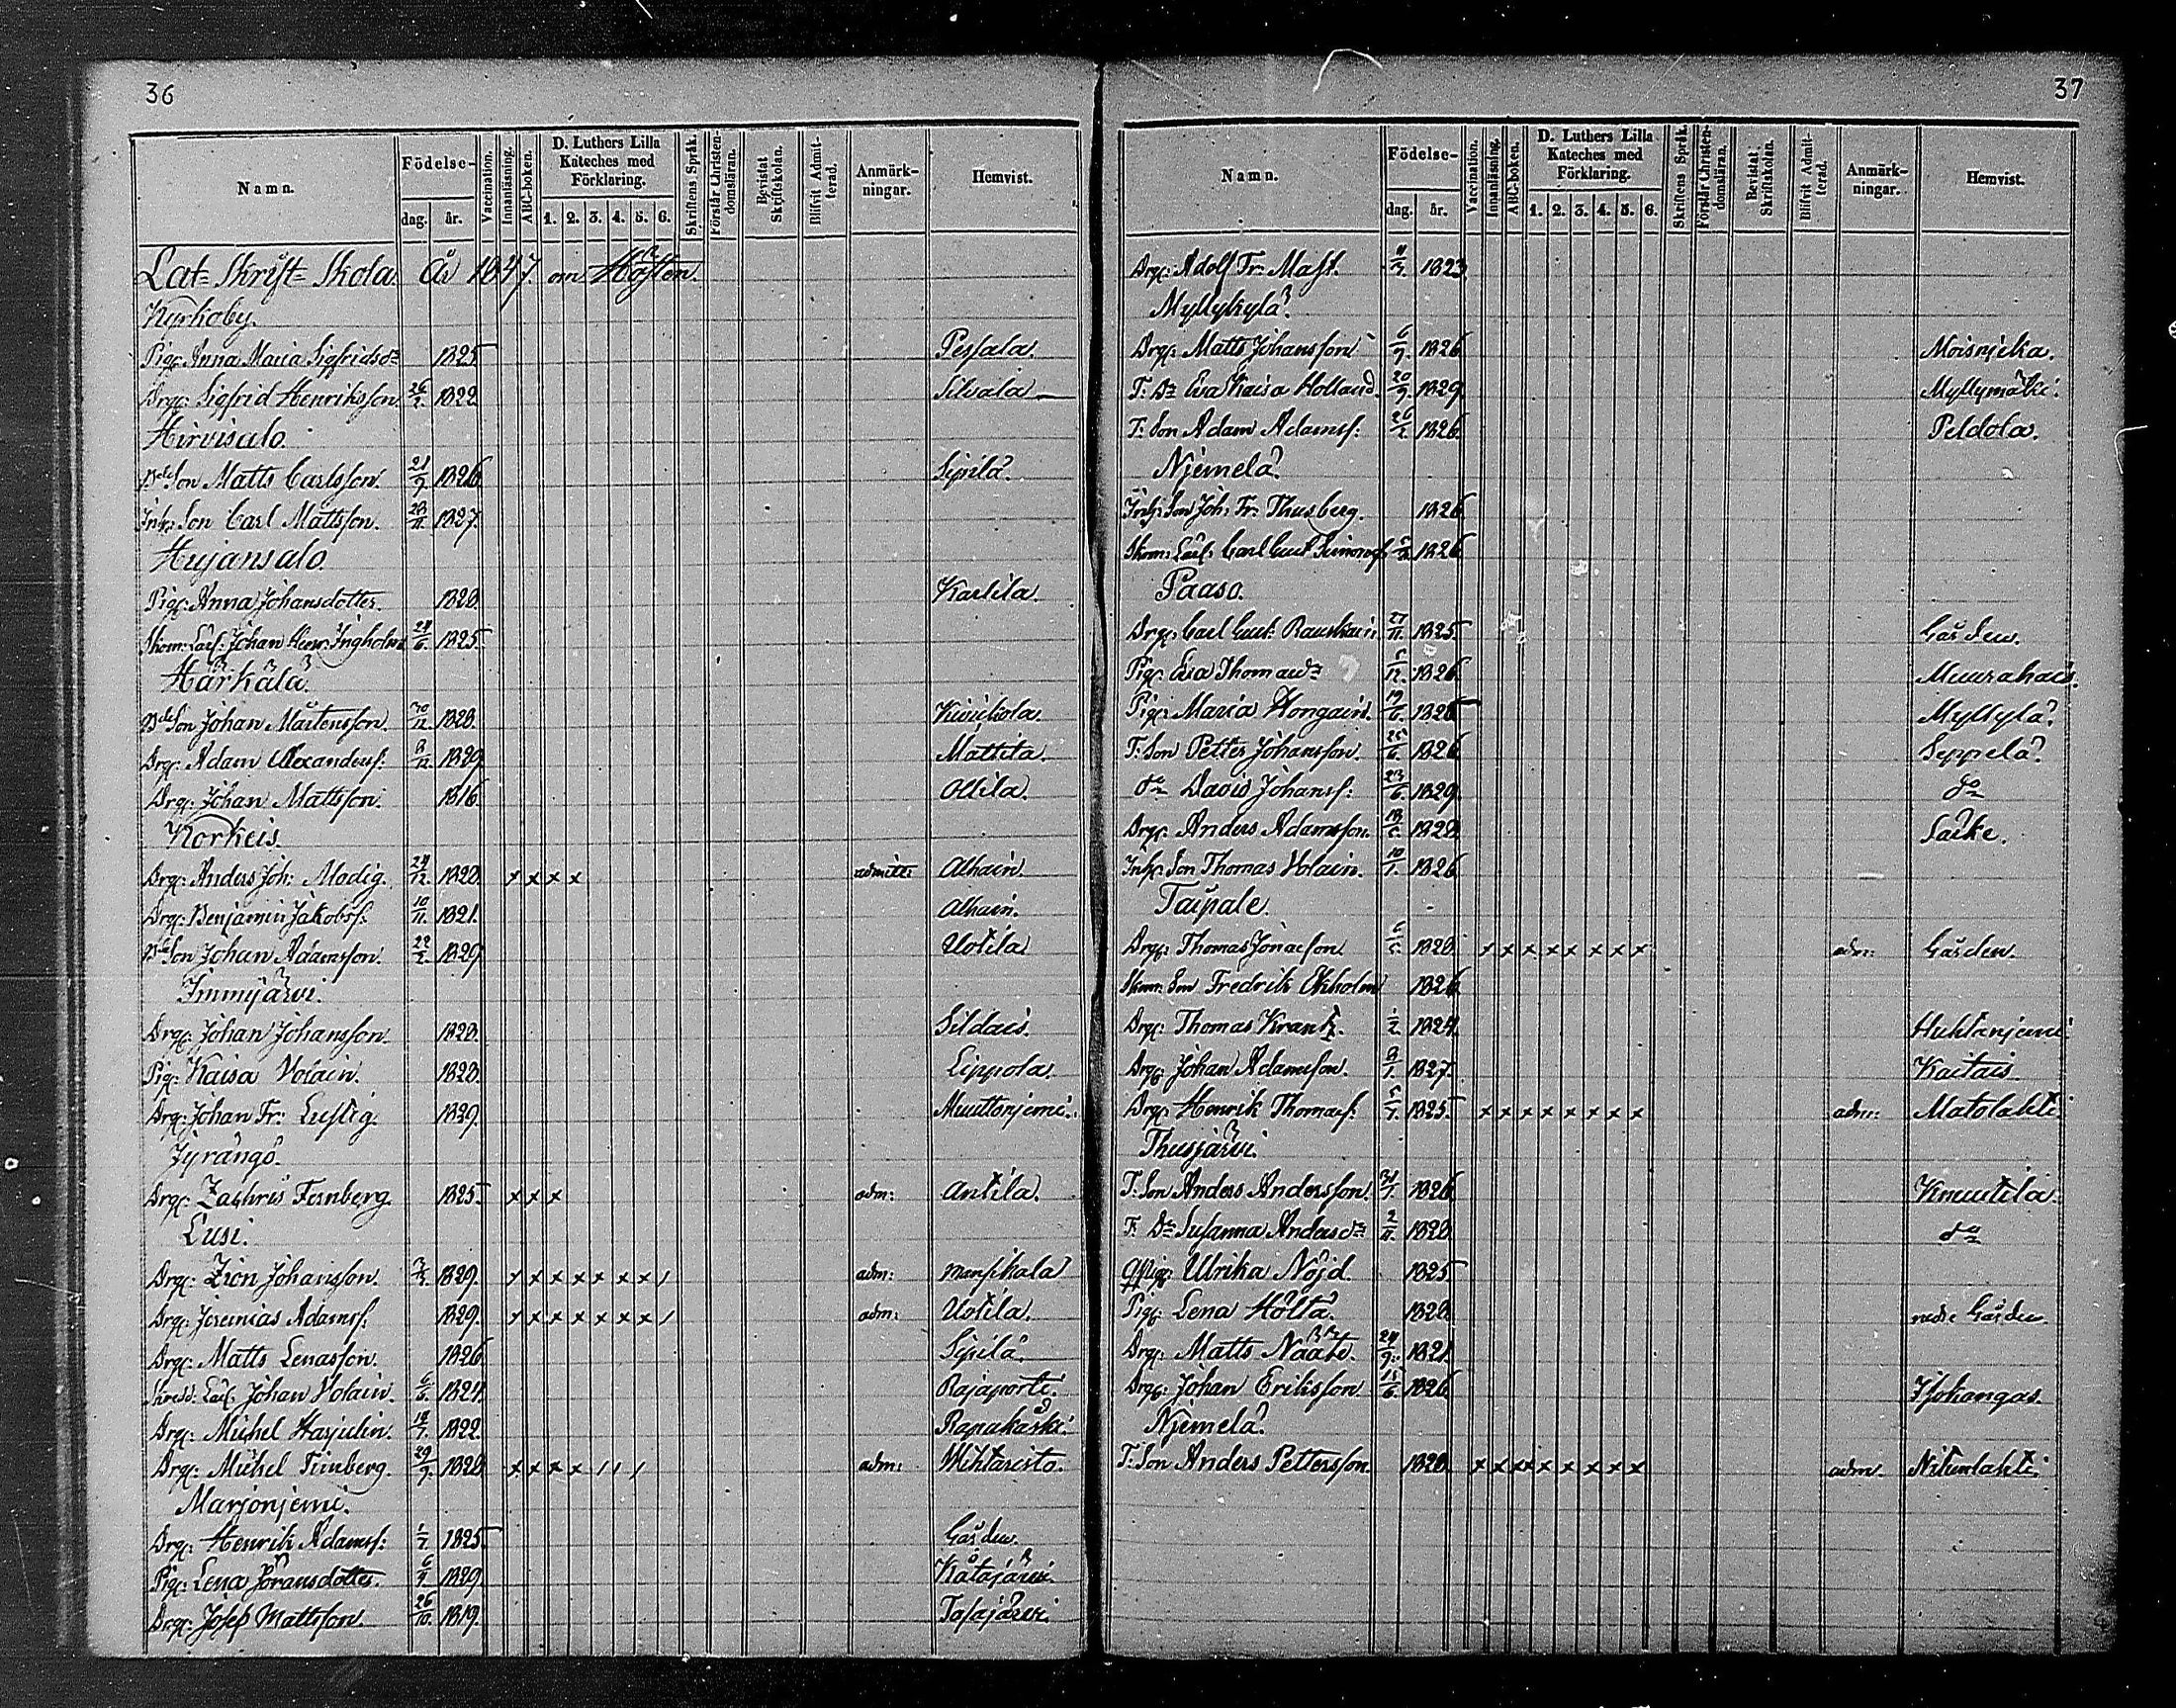 36
Namn. Födelse- dag. år. Vaccination. Innanläsning. ABC-boken. D. Luthers Lilla Kateches med Förklaring. 1. 2. 3. 4. 5. 6. Skriftens Språk. Förstår Christendomsläran. Bevistat Skriftskolan. Blifvit Admitterad. Anmärkningar. Hemvist.
Lat= Skrift= Skola. År 1847. om Hösten.
Kyrkoby.
Pig: Anna Maria Sigfridsdr 1825 Pessala.
Drg: Sigfrid Henriksson. 26/2. 1822 Silvala
Hirvisalo
Son Matts Carlsson. 21/9 1826 Sipilä.
Inh: Son Carl Mattsson. 28/11. 1827.
Hujansalo
Pig: Anna Johansdotter. 1828. Karlila.
Johan Henr: Ingholm 24/6. 1825.
Härkälä.
Son Johan Mårtensson. 30/12. 1828. Kuivikola.
Drg: Adam Alexanderss: 1829. Mattila.
Drg: Johan Mattsson. 1816. Ollila.
Korkeis.
Drg: Anders Joh: Modig. 24/12. 1828. x x x x admitt: Alhain.
Drg: Benjamin Jakobss: 10/11. 1821. Alhain.
Son Johan Adamsson. 22/2. 1829 Uotila
Immijärvi.
Drg: Johan Johansson. 1828. Sildais.
Pig: Kaisa Voiain. 1828. Lippola.
Drg: Johan Fr: Lustig. 1829. Muuttonjemi.
Jyrängö.
Drg: Zachris Fernberg. 1825. x x x adm: Antila.
Lusi.
Drg: Zion Johansson. 1829. x x x x x x x / adm: Mansikala
Drg: Jeremias Adamss: 1829. x x x x x x x / adm: Uotila.
Drg: Matts Lenasson. 1826 Sipilä.
Johan Holain. 6/6. 1824. Rajaporti.
Drg: Michel Harjulin. 18/7. 1822. Rapakaski.
Drg: Michel Timberg. 29/9. 1828 x x x x / / / adm: Wihtaristo.
Marjonjemi.
Drg: Henrik Adamss: 1/7. 1825 Gården.
Pig: Lena Göransdotter. 6/9. 1829. Katajärvi.
Drg: Josep Mattsson. 26/10. 1819. Tasajärvi.
37
Namn. Födelse- dag. år. Vaccination. Innanläsning. ABC-boken. D. Luthers Lilla Kateches med Förklaring. 1. 2. 3. 4. 5. 6. Skriftens Språk. Förstår Christendomsläran. Bevistat Skriftskolan. Blifvit Admitterad. Anmärkningar. Hemvist.
Drg: Adolf Fr: Mast. 1823
Myllykylä.
Drg: Matts Johansson 6/9. 1826. Moisnicka.
T: Dr Eva Kaisa Holland. 20/9. 1829. Myllymäki.
T: Son Adam Adamss: 26/2. 1826. Peldola.
Njemelä.
Inh: Son Joh: Fr: Thusberg. 1826
Carl Gust 1826
Paaso.
Drg: Carl Gust: Rauskain 27/11. 1825 Gården.
Pig: Eva Thomasdr 1826 Muurahais.
Pig: Maria Hongain. 19/6. 1825 Myllylä.
T: Son Petter Johansson. 25/6. 1826. Seppelä.
do David Johanss: 23/6. 1829. do
Drg: Anders Adamsson. 1828
Inh: Son Thomas Holain. 10/1. 1826
Taipale.
Drg: Thomas Jonasson 1828. x x x x x x x x adm: Gården.
Son Fredrik Ekholm 1826
Drg: Thomas Krantz. 1/2. 1824. Huhtanjemi.
Drg: Johan Adamsson. 1827. Kaitais.
Drg: Henrik Thomass: 5/7. 1825. x x x x x x x x adm: Matolahti.
Thusjärvi.
T: Son Anders Andersson. 1826 Knuutila.
T: Dr Susanna Andersdr 2/11. 1828 do
Ulrika Nöjd. 1825
Pig: Lena Hölttä. 1828. nedre Gården.
Drg: Matts Naate. 24/9. 1821.
Drg: Johan Eriksson 15/6. 1826
Njemelä.
T: Son Anders Pettersson. 1828. x x x x x x x x x adm. Niemlahti.